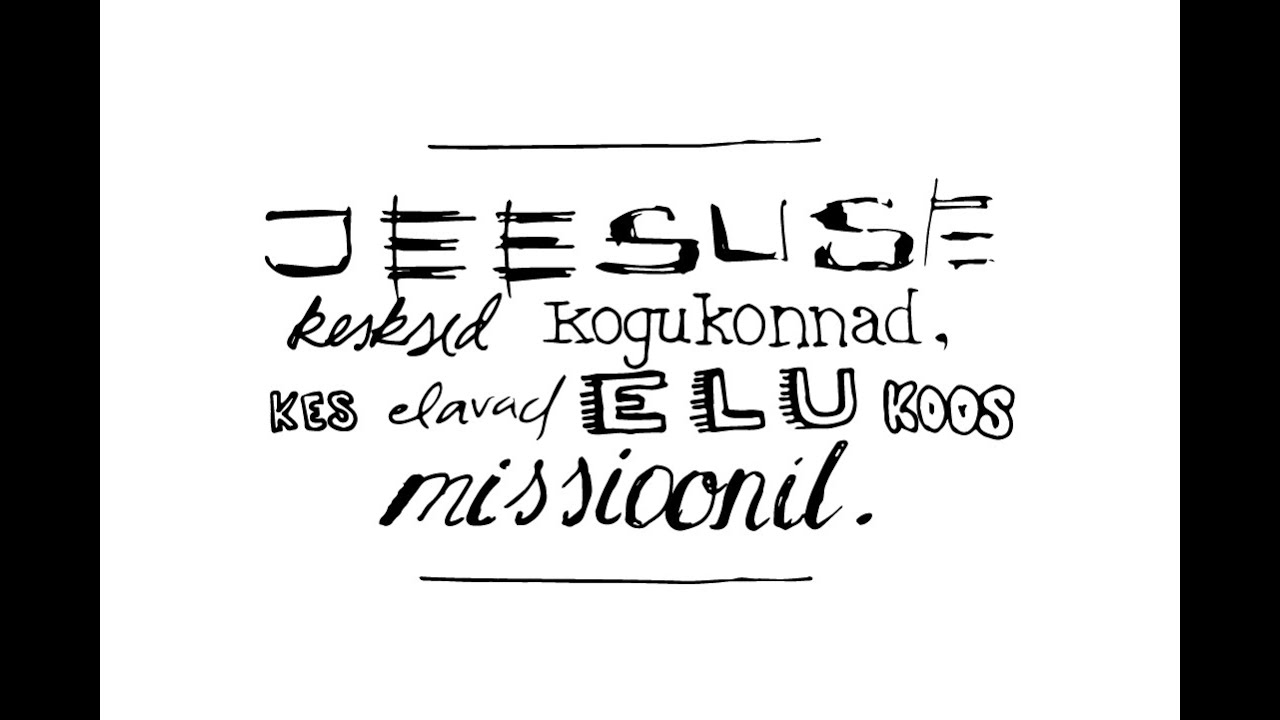 JEESUSE
kesksed kogukonnad,
KES elavad ELU KOOS
missioonil.